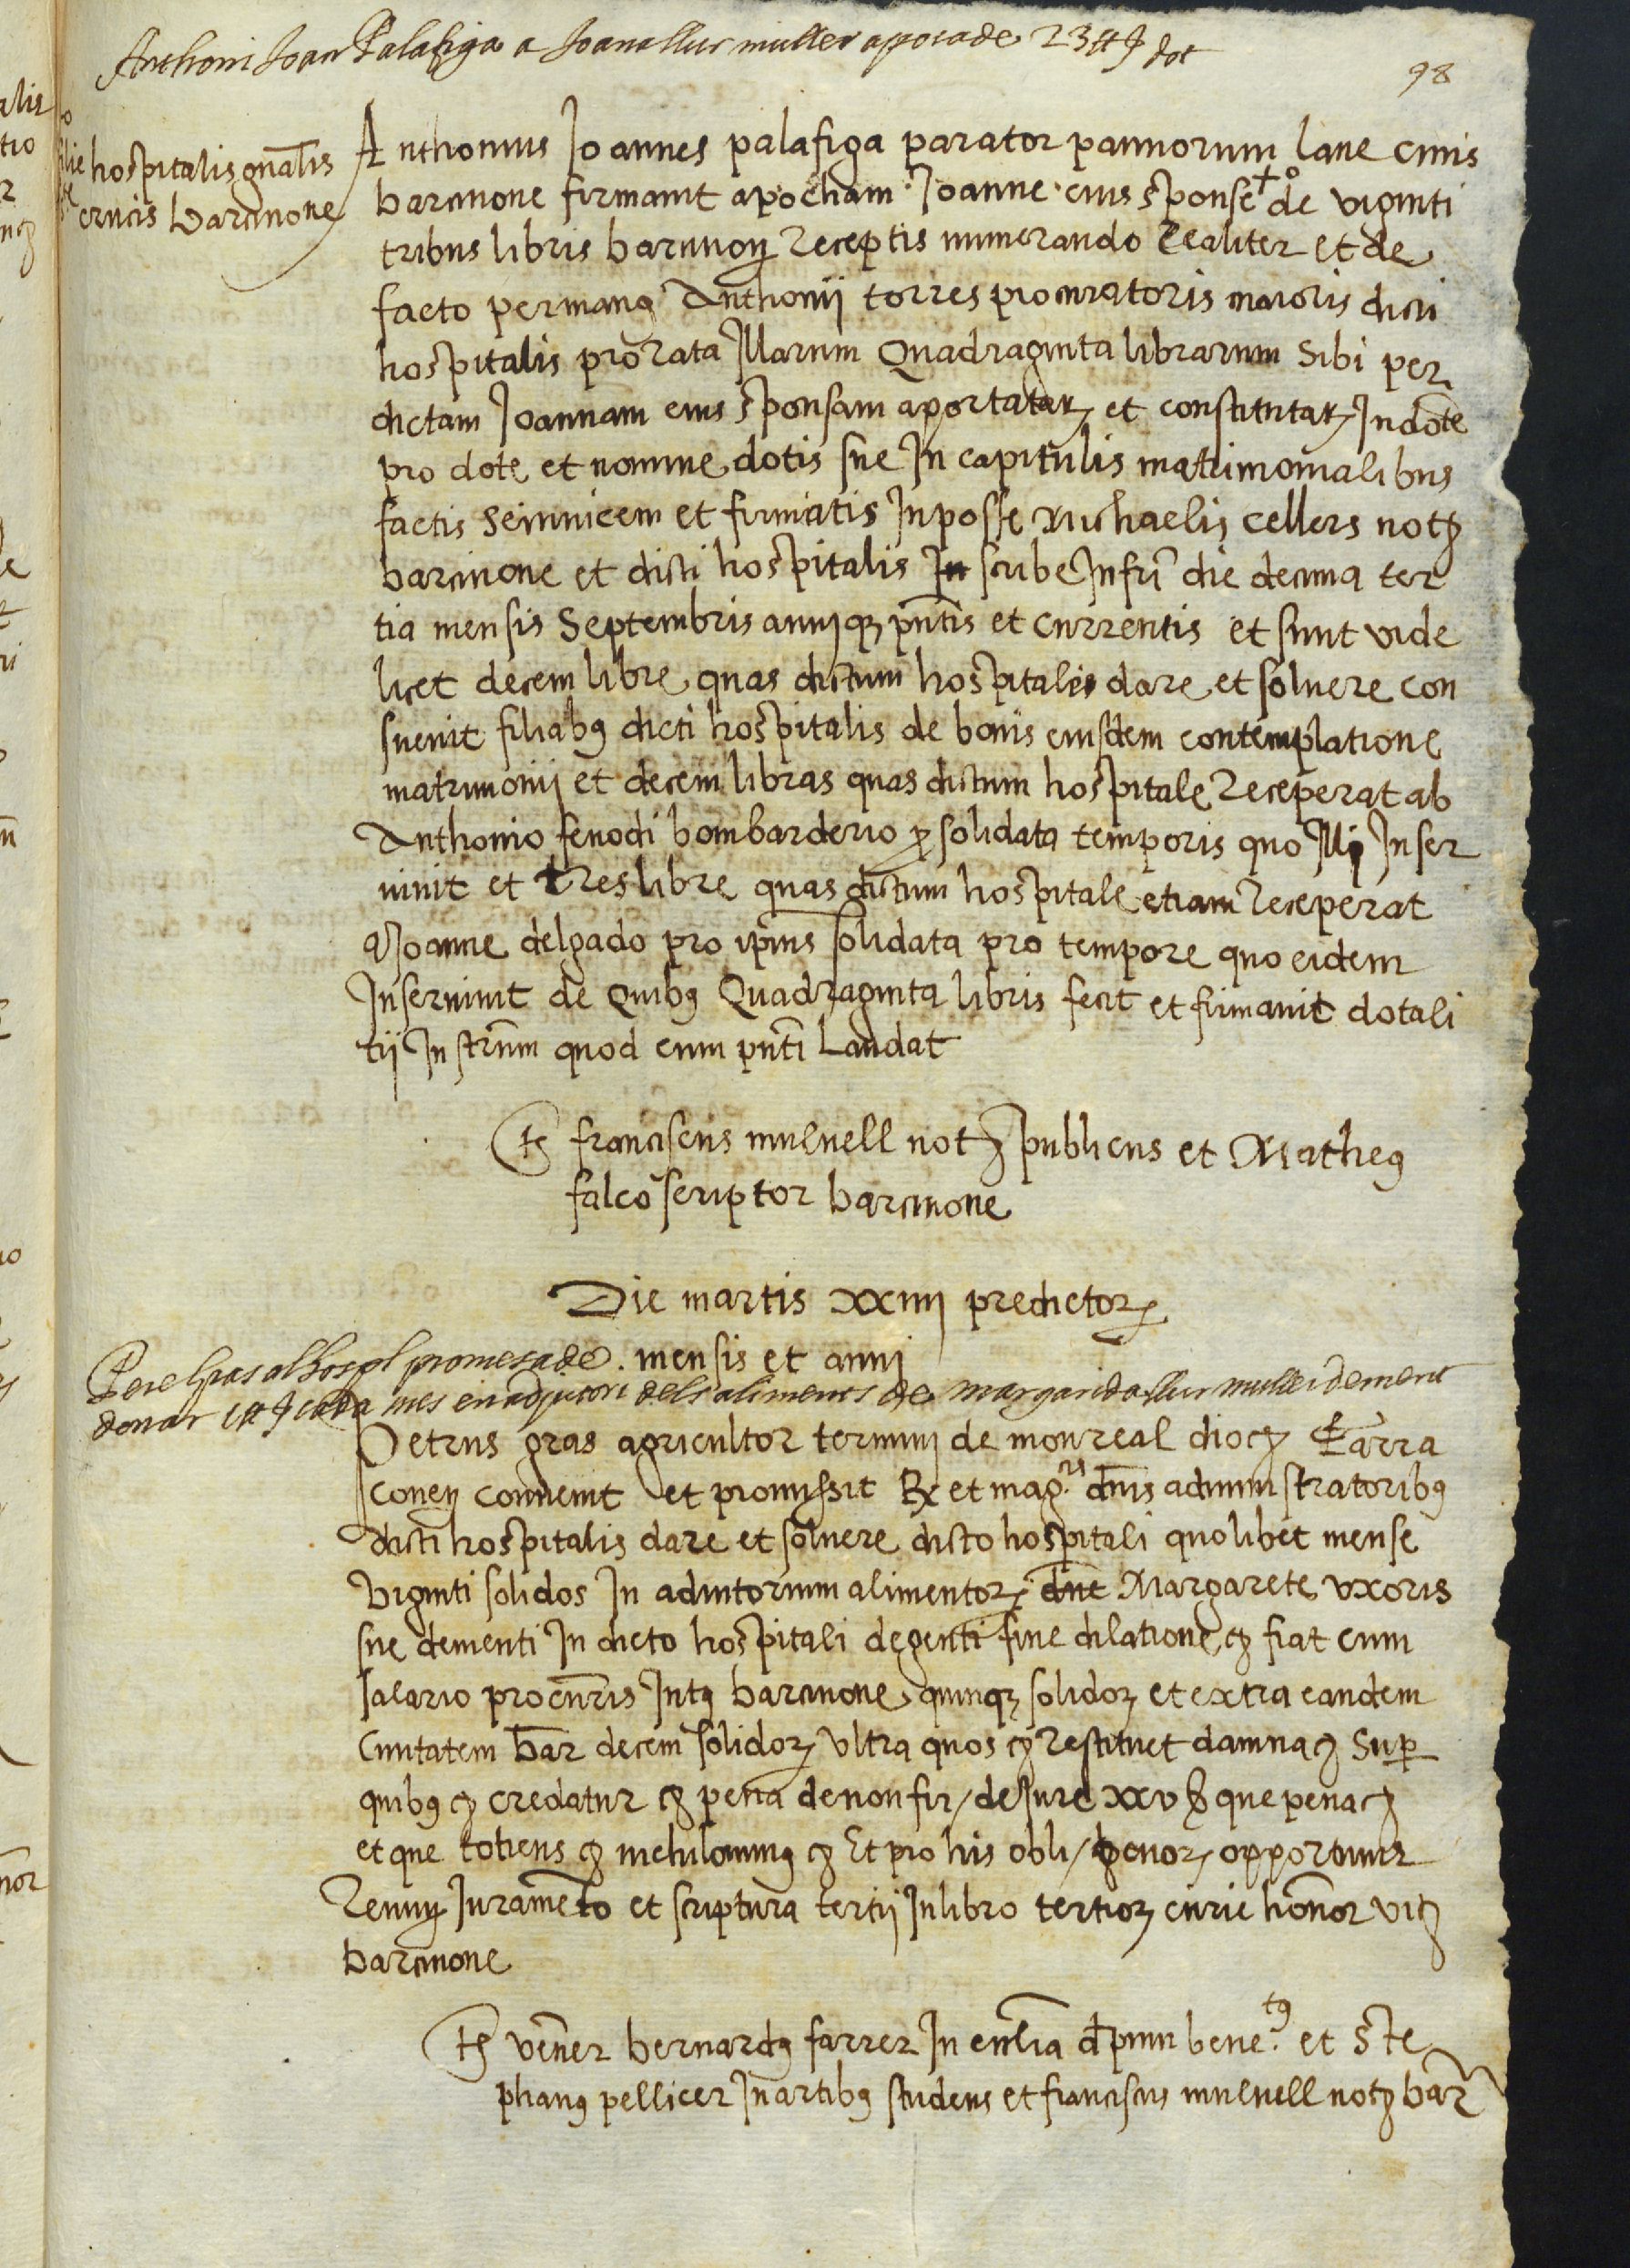 Anthoni Joan Palafiga a Joana llur muller apoca de 23 ħ dot
98
hospitalis gnalis
crucis barcinone
Anthonius Joannes palafiga parator pannorum lane civis
barcinone firmavit apocham Joanne eius sponse +o de viginti
tribus libris barcinon receptis numerando realiter et de
facto per manꝰ Anthonij torres procuratoris maioris dicti
hospitalis pro rata illarum Quadraginta librarum sibi per
dictam Joannam eius sponsam aportatarꝫ et constitutarꝫ In dote
pro dote et nomine dotis sue In capitulis matrimonialibus
factis seinvicem et firmatis In posse Michaelis cellers notꝫ
barcinone et dicti hospitalis scribe Infri die decima ter
tia mensis Septembris annj qꝫ pntis et currentis et sunt vide
licet decem libre quas dictum hospitale dare et solvere con
suevit filiabꝰ dicti hospitalis de bonis eiusdem contemplatione
matrimonij et decem libras quas dictum hospitale receperat ab
Anthonio fenodi bombarderio ꝓ solidata temporis quo illj Inser
vivit et tres libre quas dictum hospitale etiam receperat
a Joanne delgado pro ipius solidata pro tempore quo eidem
Inservivit de quibꝰ Quadraginta libris fecit et firmavit dotali
tij Instrum quod cum pnti laudat
ts franciscus mulnell notꝫ publicus et Matheꝰ
falco scriptor barcinone
Die martis xxiiij predictorꝫ
mensis et annj
Pere Gras al hospl promesa de
donar 1 ħ cada mes en adjutori dels aliments de Margarida llur muller dement
Petrus gras agricultor terminj de monreal diocꝫ Tarra
conen convenit et promissit Rx et magcis dnis administratoribꝰ
dicti hospitalis dare et solvere dicto hospitali quolibet mense
viginti solidos In adiutorium alimentorꝫ dne Margarete uxoris
sue dementi In dicto hospitali degenti sine dilatione ꝫ fiat cum
salario procuris Intꝰ barcinone quinqꝫ solidorꝫ et extra eandem
Civitatem bar decem solidorꝫ ultra quos ꝫ restituet damna ꝫ Super
quibꝰ ꝫ credatur ꝫ pena de non fir / de jure xxv ß que pena ꝫ
et que totiens ꝫ nichilominꝰ ꝫ Et pro his obli / bonorꝫ opportunis
renun Juramento et scriptura tertij In libro tertiorꝫ curie honor vicꝫ
barcinone
ts vener bernardꝰ farrer In ecclia d pinu benetꝰ et Ste
phanꝰ pellicer In artibꝰ studens et franciscus mulnell notꝫ bar